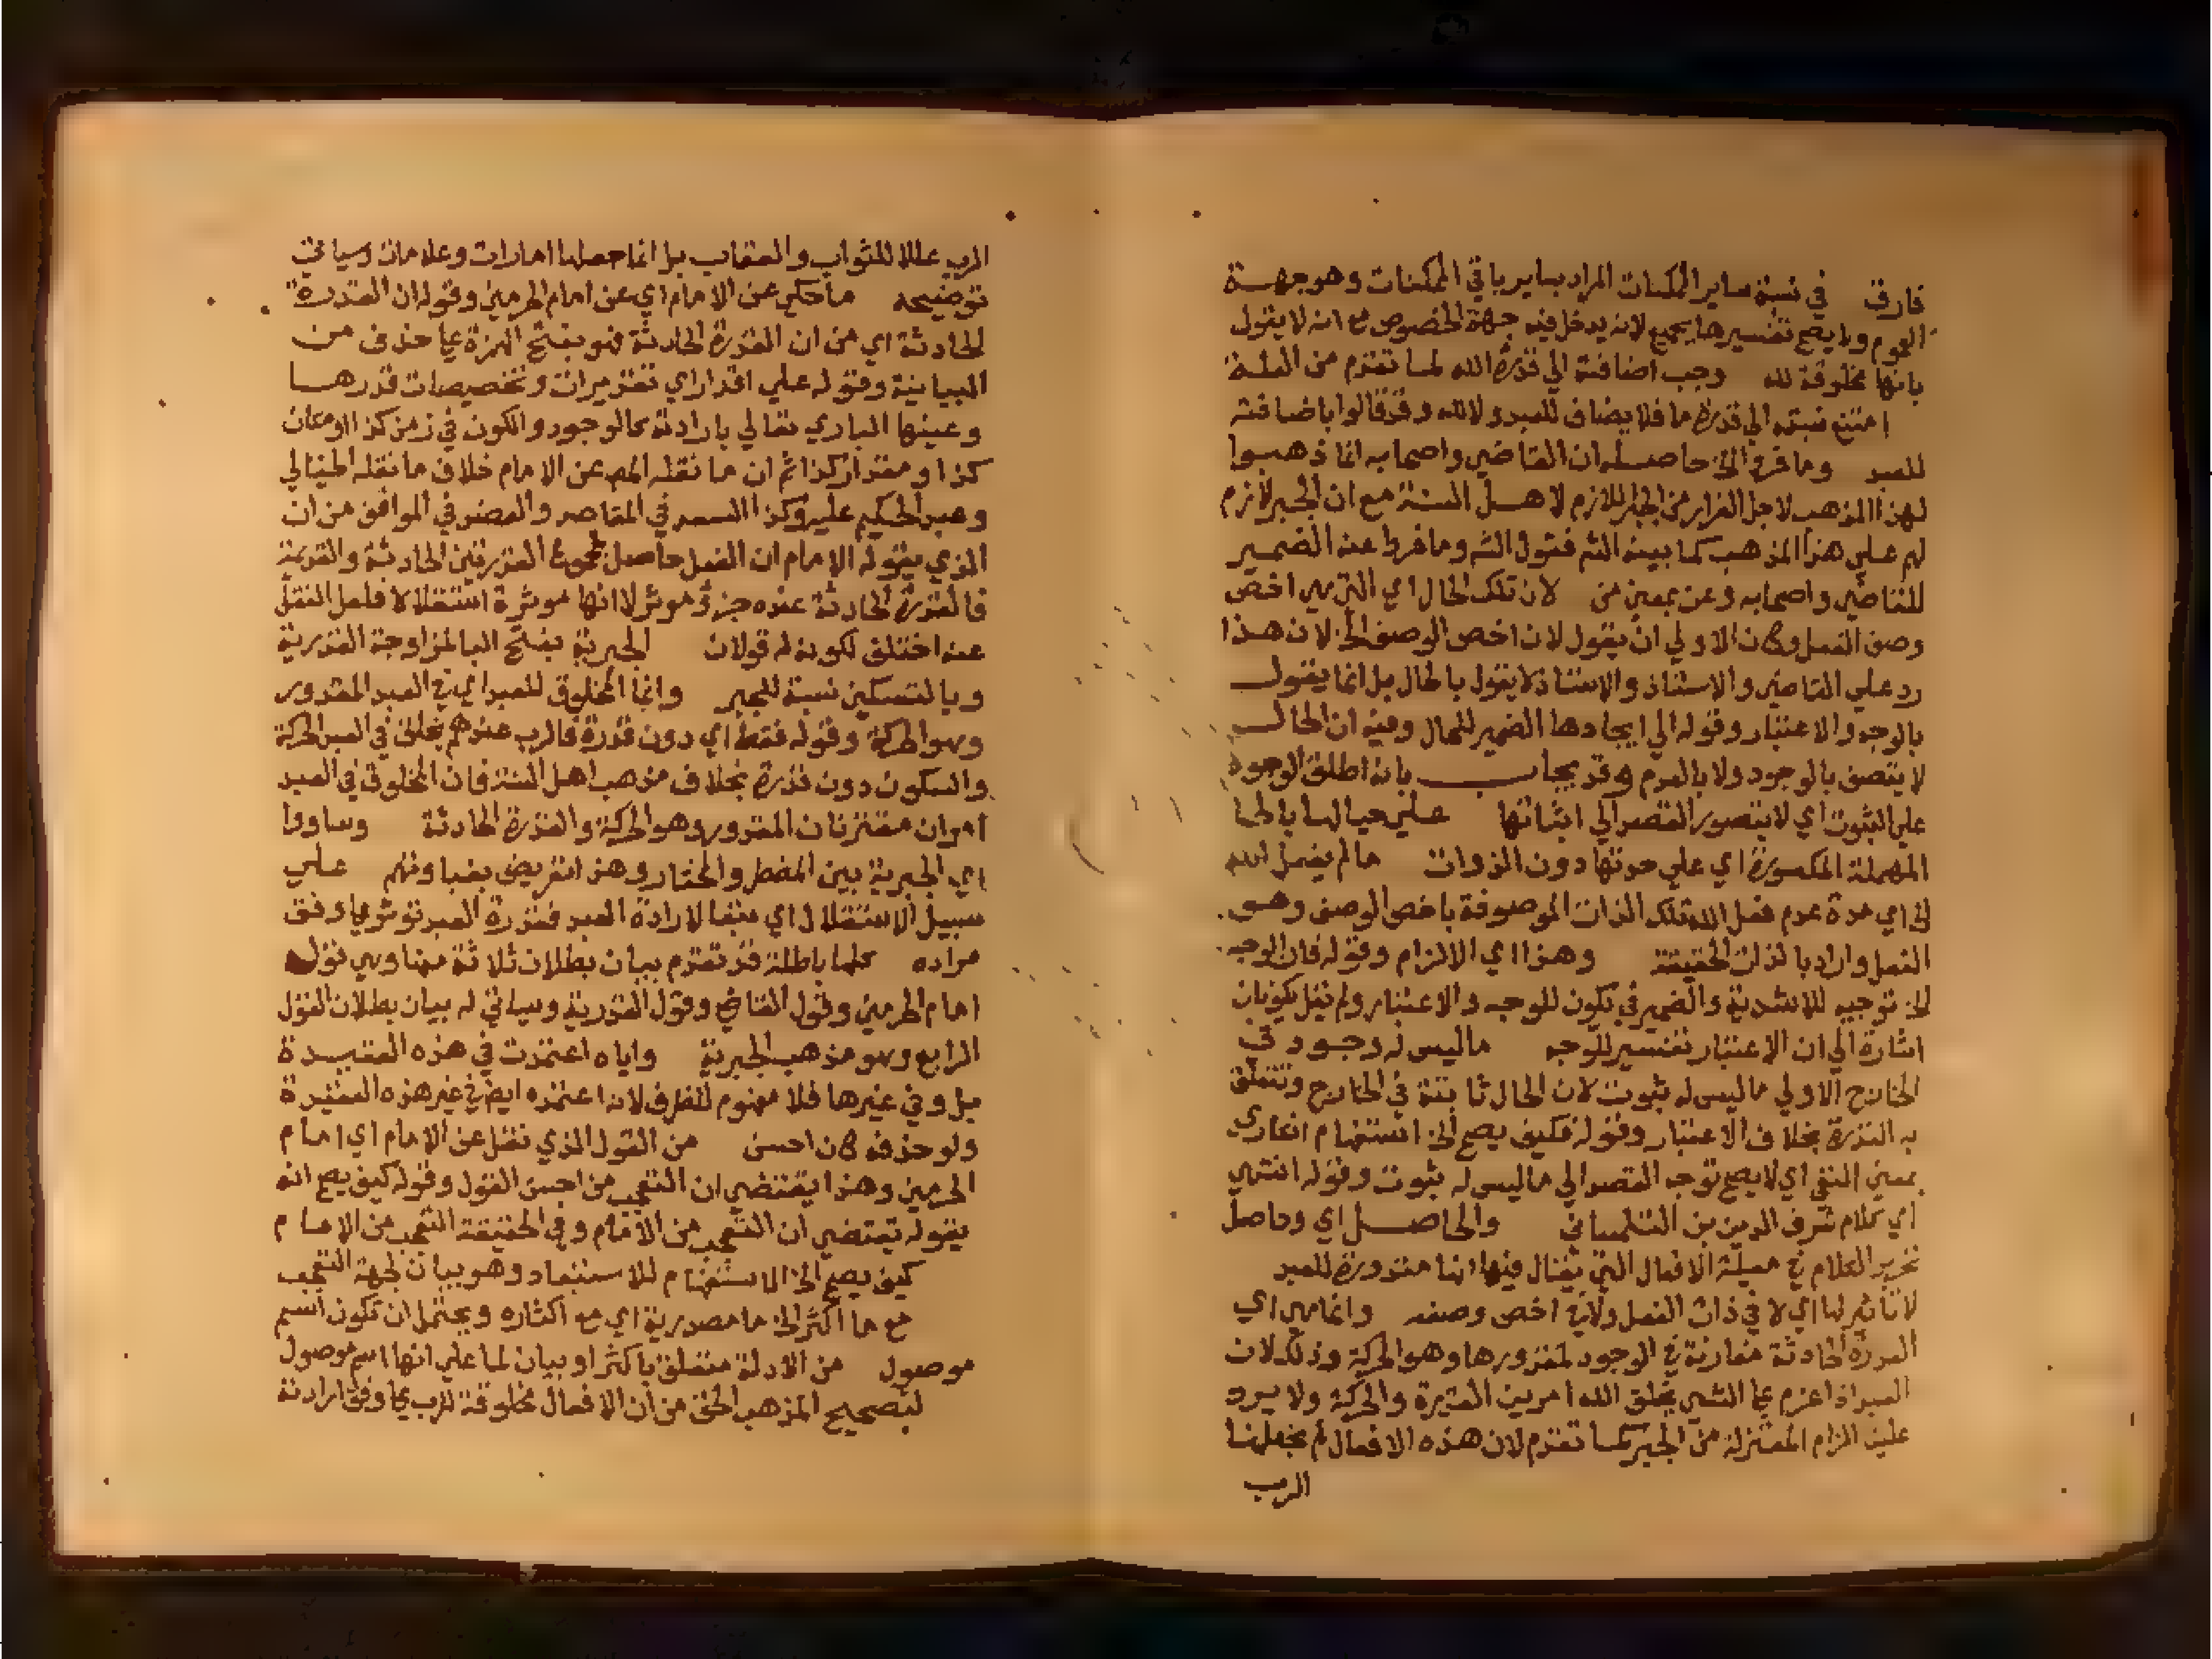 فارق في نسبة ساير الممكنات المراد بساير باقي الممكنات وهو جهة
العموم ولا يصح تفسيرها بجميع لانه يدخل فيه جهة الخصوص مع انه لا يقول
بانها مخلوقة لله وجب اضافته الي قدرة الله لما تقدم من العلة
امتنع نسبته الي قدرة ما فلا يضاف للعبد ولا لله وقد قالوا باضافته
للعبد وما فر الخ حاصله ان القاضي واصحابه انما ذهبوا
لهذا المذهب لاجل الفرار من الجبر اللازم لاهل السنة مع ان الجبر لازم
لهم علي هذا المذهب كما بينه الشم فقول الشه وما فروا عنه الضمير
للقاضي واصحابه وعن بمعني من لان تلك الحال اي التي هي اخص
وصف الفعل وكان الاولي ان يقول لان اخص الوصف الخ لان هذا
رد علي القاضي والاستاذ والاستاذ لا يقول بالحال بل انما يقول
بالوجه والاعتبار وقوله الي ايجادها الضمير للحال وفيه ان الحال
لا يتصف بالوجود ولا بالعدم وقد يجاب بانه اطلق الوجود
علي الثبوت اي لا يتصور القصد الي اثباتها علي حيالها بالحا
المهملة المكسورة اي علي حدتها دون الذوات مالم يفعل الله
الخ اي مدة عدم فعل الله تلك الذات الموصوفة باخص الوصف وهو
الفعل واراد بالذات الحقيقة وهذا اي الالزام وقوله فان الوجه
الخ توجيه للاشدية والضمير في تكون للوجه والاعتبار ولم يقل يكونان
اشارة الي ان الاعتبار تفسير للوجه ماليس له وجود في
الخارج الاولي ماليس له ثبوت لان الحال ثابتة في الخارج وتتعلق
به القدرة بخلاف الاعتبار وقوله فكيف يصح الخ استفهام انكاري
بمعني النفي اي لا يصح توجه القصد الي ماليس له ثبوت وقوله انتهي
اي كلام شرف الدين بن التلمساني والحاصل اي وحاصل
تحرير الكلام في مسيلة الافعال التي يقال فيها انها مقدورة للعبد
لا تاثير لها اي لا في ذات الفعل ولا في اخص وصفه وانما هي اي
القدرة الحادثة مقارنة في الوجود لمقدورها وهو الحركة وذلك لان
العبد اذا عزم علي الشي يخلق الله امرين القدرة والحركة ولا يرد
علينا الزام المعتزلة من الجبر كما تقدم لان هذه الافعال لم يجعلها
الرب
الرب عللا للثواب والعقاب بل انما جعلها امارات وعلامات وسياتي
توضيحه ما حكي عن الامام اي عن امام الحرمين وقوله ان القدرة
الحادثة اي من ان القدرة الحادثة فهو بفتح الهمزة علي حذف من
البيانية وقوله علي اقدار اي تقديرات وتخصيصات قدرها
وعينها الباري تعالي بارادته كالوجود والكون في زمن كذا او مكان
كذا او مقدار كذا ثم ان ما نقله المص عن الامام خلاف ما نقله الخيالي
وعبد الحكيم عليه وكذا السعد في المقاصد والعضد في المواقف من ان
الذي يقوله الامام ان الفعل حاصل بمجموع القدرتين الحادثة والقديمة
فالقدرة الحادثة عنده جزؤ موثر لا انها موثرة استقلالا فلعل النقل
عنه اختلف لكونه له قولان الجبرية بفتح البا لمزاوجة القدرية
وبالتسكين نسبة للجبر وانما المخلوق للعبد اي في العبد المقدور
وهو الحركة وقوله فقط اي دون قدرة فالرب عندهم يخلق في العبد الحركة
والسكون دون قدرة بخلاف مذهب اهل السنة فان المخلوق في العبد
امران مقترنان المقدور وهو الحركة والقدرة الحادثة وساووا
اي الجبرية بين المضطر والمختار وهذا تعريض بغباوتهم علي
سبيل الاستقلال اي تبعا لارادة العبد فقدرة العبد توثر علي وفق
مراده كلها باطلة قد تقدم بيان بطلان ثلاثة منها وهي قول
امام الحرمين وقول القاضي وقول القدرية وسياتي له بيان بطلان القول
الرابع وهو مذهب الجبرية واياه اعتمدت في هذه العقيدة
بل وفي غيرها فلا مفهوم للظرف لانه اعتمده ايضا في غير هذه العقيدة
ولو حذفه كان احسن من القول الذي نقل عن الامام اي امام
الحرمين وهذا يقتضي ان التعجب من احسن القول وقوله كيف يصح انه
يقوله يقتضي ان التعجب من الامام وفي الحقيقة التعجب من الامام
كيف يصح الخ الاستفهام للاستبعاد وهو بيان لجهة التعجب
مع ما اكثر الخ ما مصدرية اي مع اكثاره ويحتمل ان تكون اسم
موصول من الادلة متعلق باكثر او بيان لما علي انها اسم موصول
لتصحيح المذهب الحق من ان الافعال مخلوقة للرب علي وفق ارادته